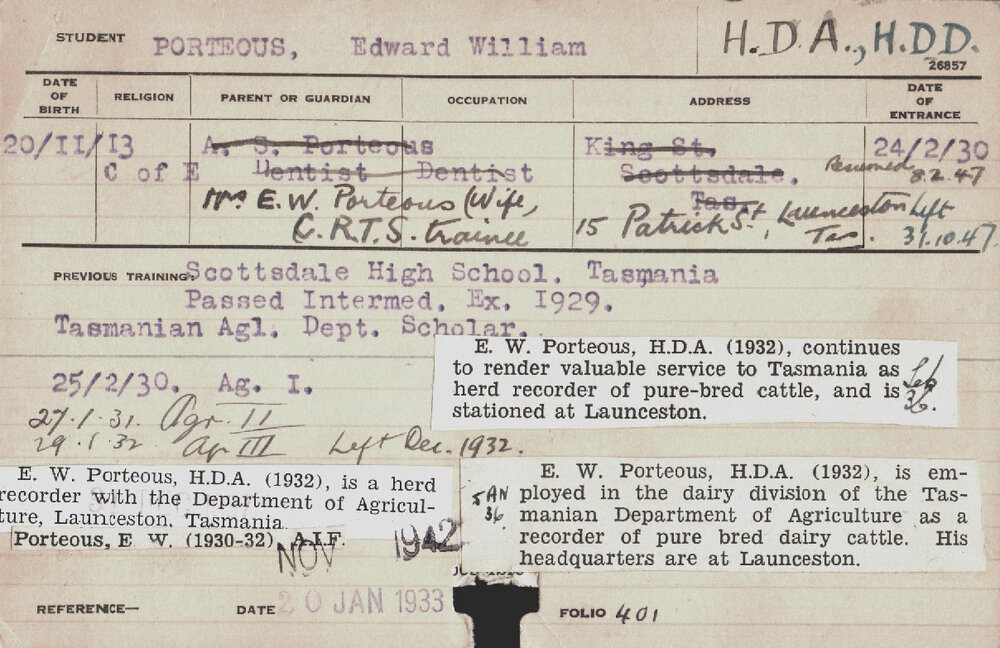 STUDENT PORTEOUS, Edward William H.D.A., H.D.D.
26857
DATE OF BIRTH RELIGION PARENT OR GUARDIAN OCCUPATION ADDRESS DATE OF ENTRANCE
20/II/I3 A. S. Porteous King St. 24/2/30
C of E Dentist Dentist Scottsdale. Resumed 8.2.47
Tas.
Mrs E.W. Porteous (Wife, 15 Patrick St, Launceston Left
C.R.T.S. trainee Tas. 31.10.47
PREVIOUS TRAINING Scottsdale High School. Tasmania
Passed Intermed. Ex. I929.
Tasmanian Agl. Dept. Scholar.
E. W. Porteous, H.D.A. (1932), continues
to render valuable service to Tasmania as
herd recorder of pure-bred cattle, and is
stationed at Launceston.
Feb
36.
25/2/30. Ag. I.
27.1.31. Agr. II
29.1.32 Ag III Left Dec. 1932.
E. W. Porteous, H.D.A. (1932), is a herd
recorder with the Department of Agricul-
ture, Launceston, Tasmania.
Porteous, E W. (1930-32) A.I.F.
NOV 1942
E. W. Porteous, H.D.A. (1932), is em-
ployed in the dairy division of the Tas-
manian Department of Agriculture as a
recorder of pure bred dairy cattle. His
headquarters are at Launceston.
JAN
36.
REFERENCE— DATE 20 JAN 1933 FOLIO 401